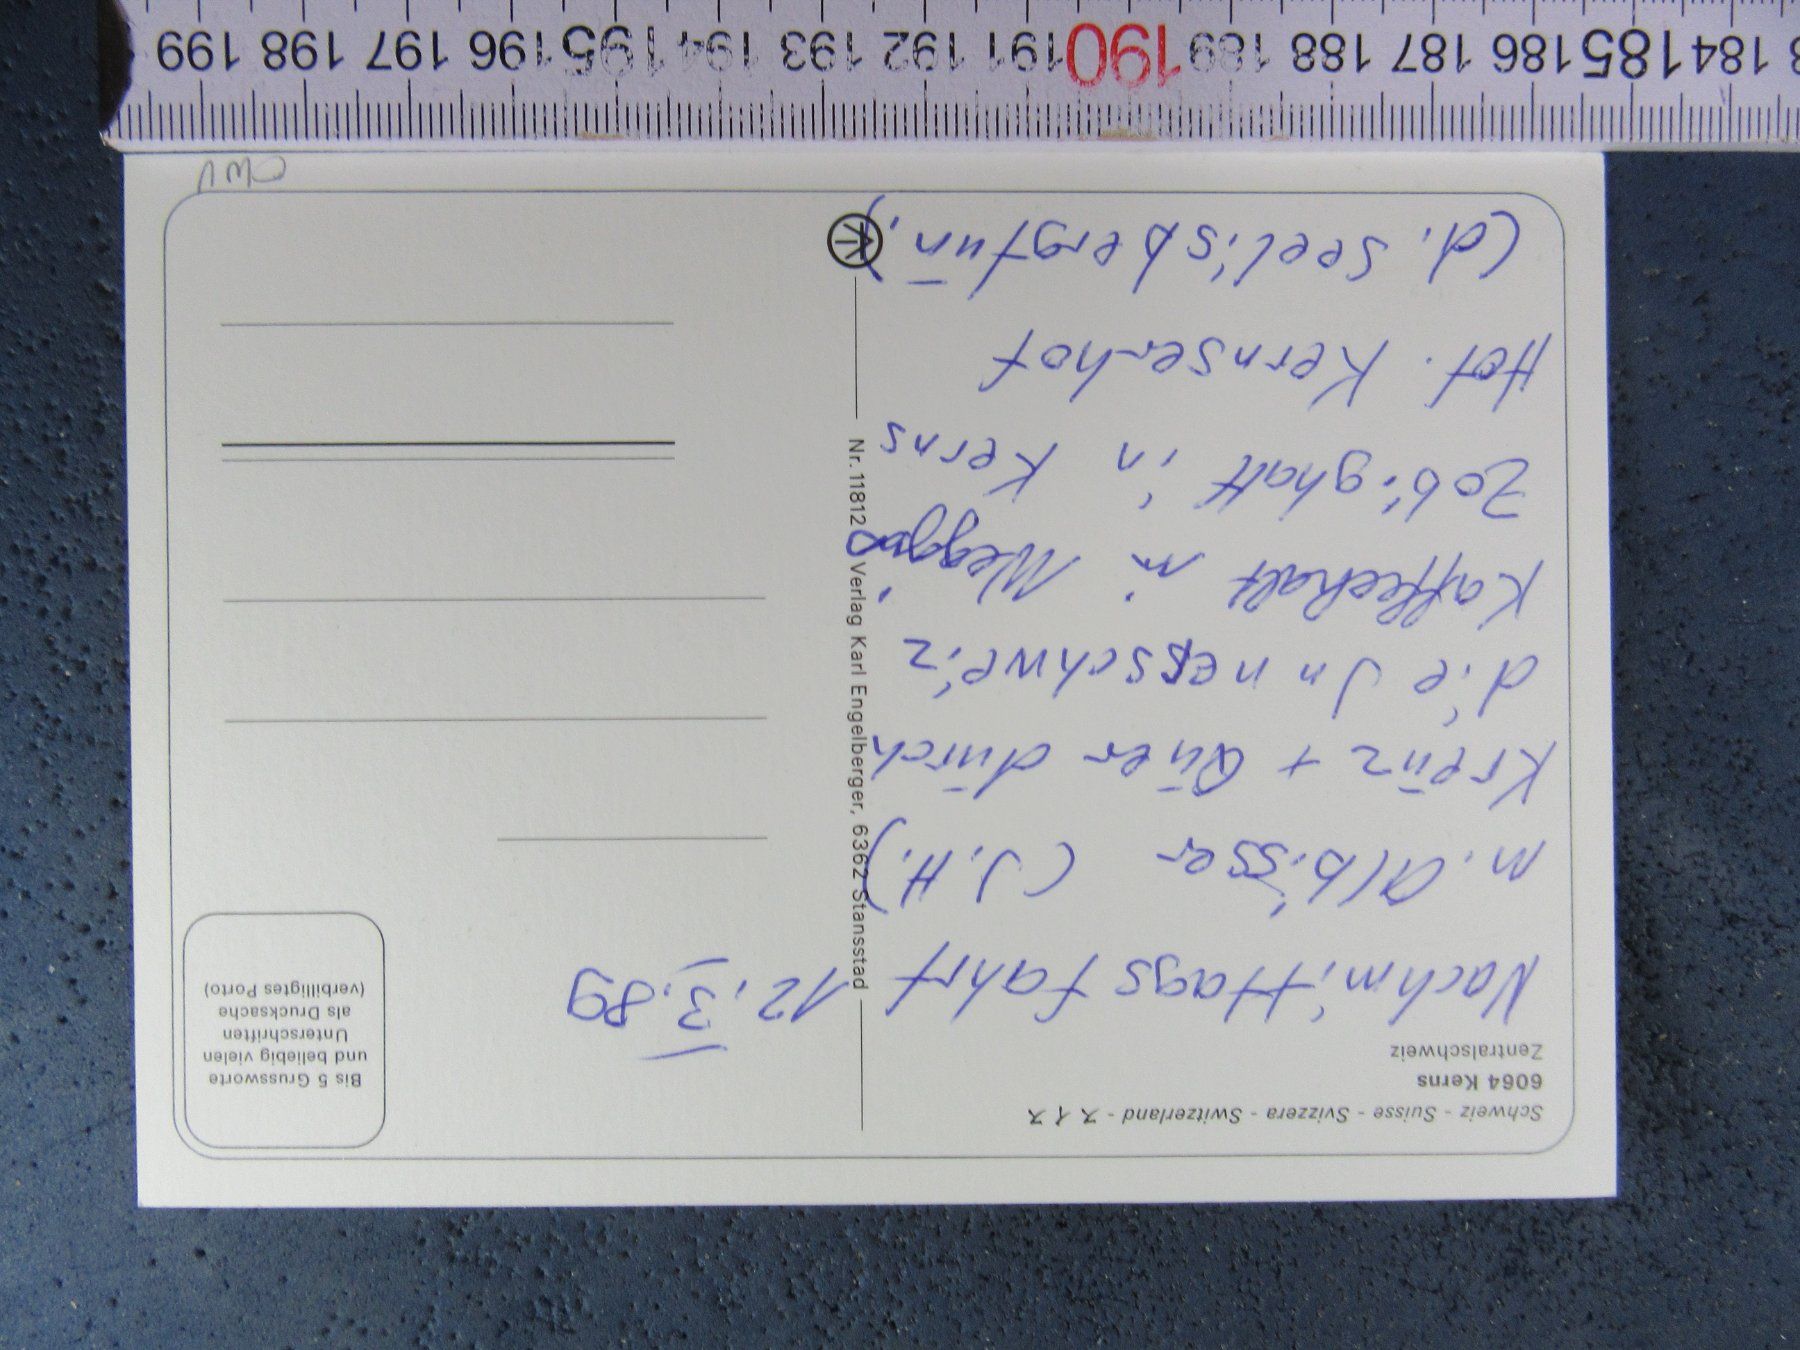 199 198 197 196 195 194 193 192 191 190 189 188 187 186 185 184
Schweiz - Suisse - Svizzera - Switzerland - スイス
6064 Kerns
Zentralschweiz
Nachmittagsfahrt 12.3.89
m. Albisser (J.H.)
Kreūz + Qūer dūrch
die Innerschweiz
Kaffeehalt in Weggis
Zobighalt in Kerns
Hot. Kernserhof
(d. Seelisbergtūn.)
Nr. 11812 Verlag Karl Engelberger, 6362 Stansstad
Bis 5 Grussworte
und beliebig vielen
Unterschriften
als Drucksache
(verbilligtes Porto)